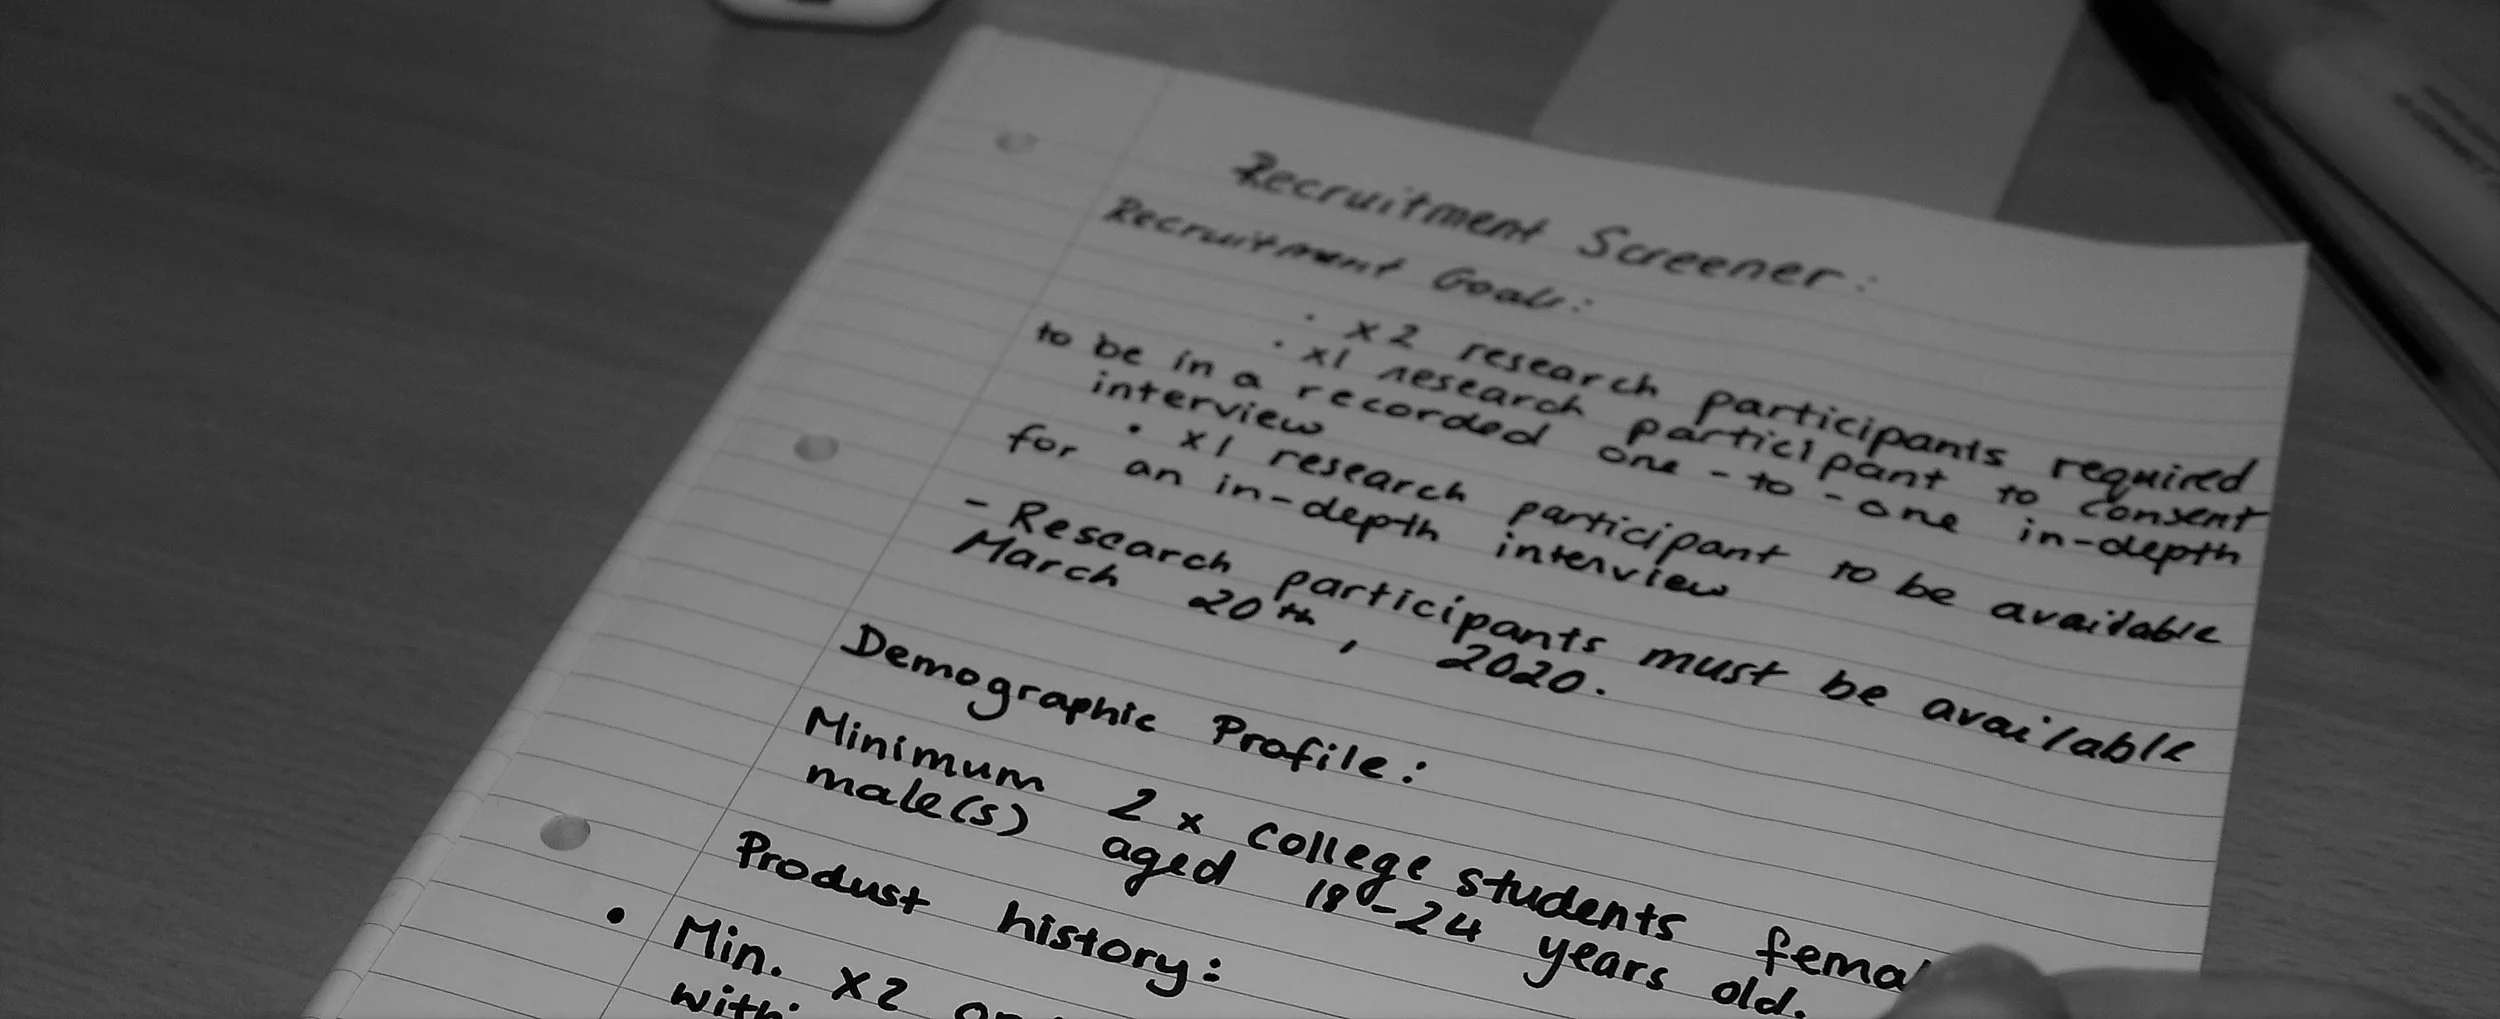 Recruitment Screener:
Recruitment Goals:
· x2 research participants required
· x1 research participant to consent
to be in a recorded one-to-one in-depth
interview
• x1 research participant to be available
for an in-depth interview
- Research participants must be available
March 20th, 2020.
Demographic Profile:
Minimum 2 x college students
male(s) aged 18-24 years old.
Product history:
• Min. x2